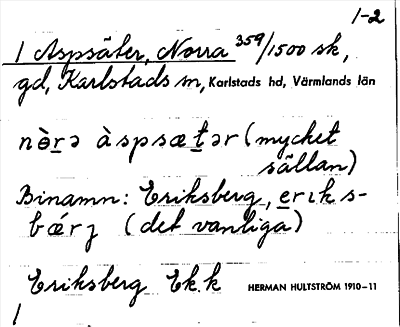 1-2
1 Aspsäter, Norra 359/1500 sk,
gd, Karlstads m, Karlstads hd, Värmlands län
nὲrə àspsætər (mycket
sällan)
Binamn: Eriksberg, erıks-
bǽrȝ (det vanliga)
Eriksberg Ek.k
HERMAN HULTSTRÖM 1910-11
1